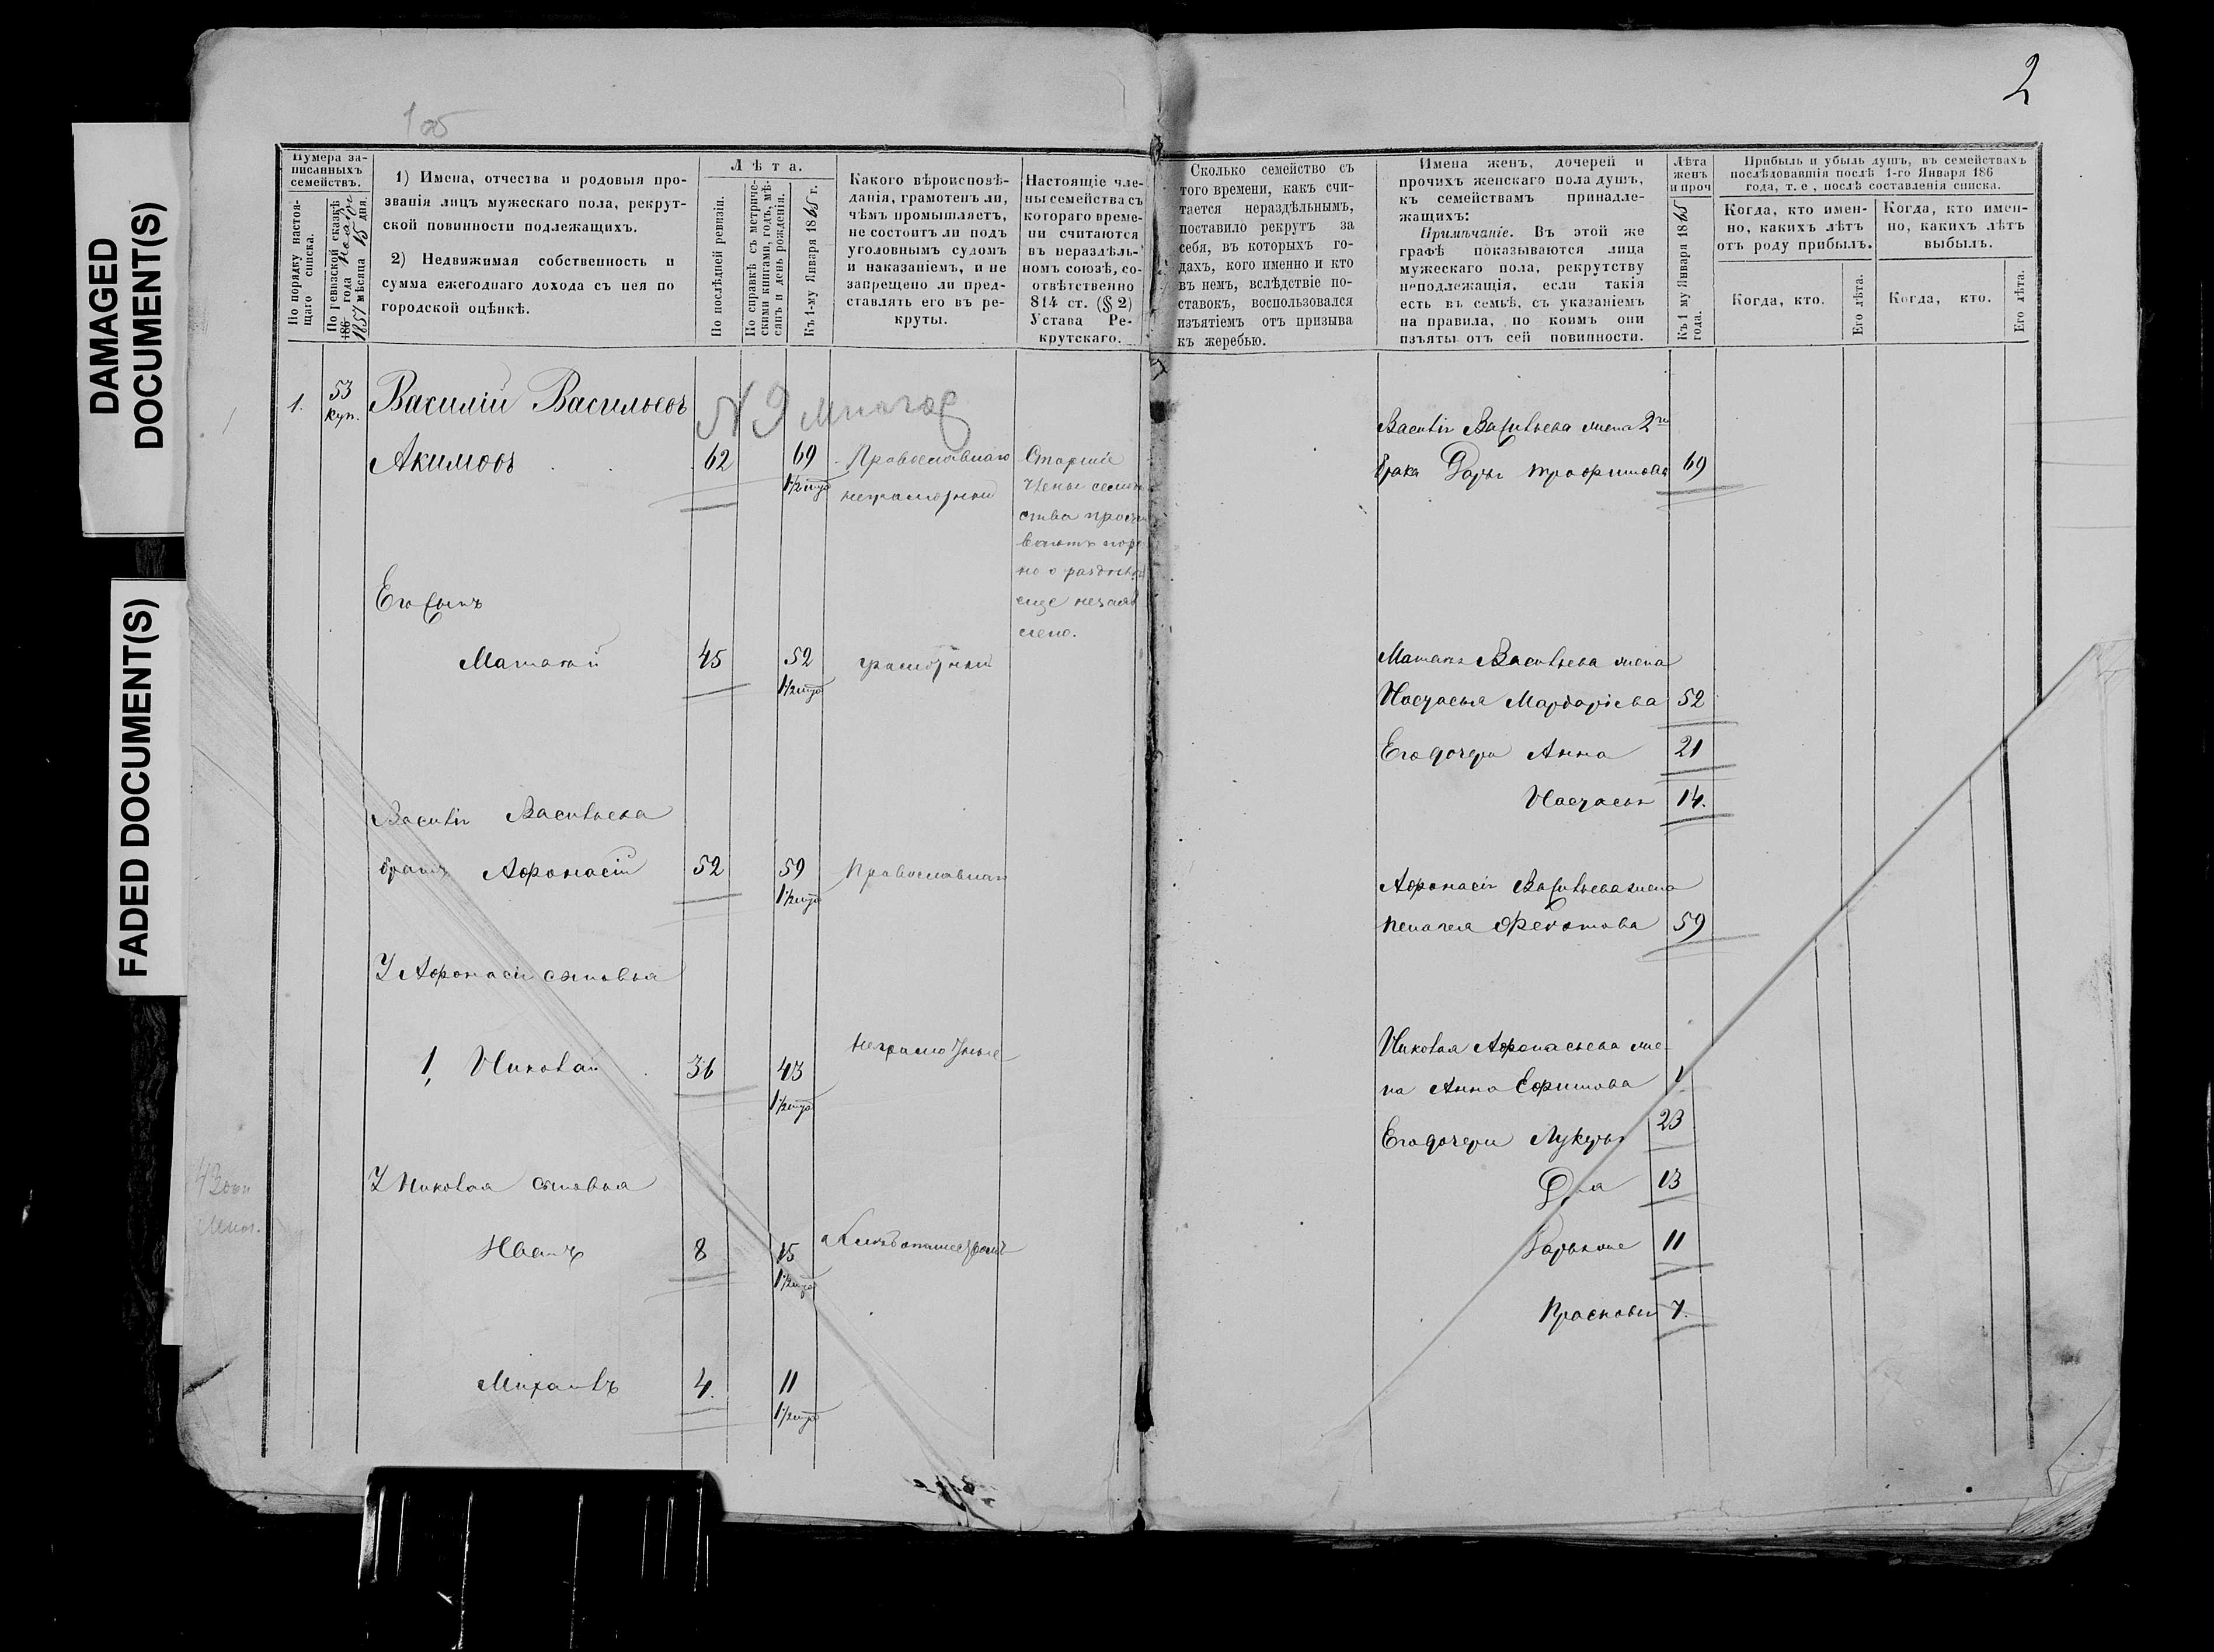 DAMAGED
DOCUMENT(S)
FADED DOCUMENT(S)
2
1 об
Нумера за-
писанныхъ
семействъ.
По порядку настоя-
щаго списка.
По ревизской сказкѣ
186 года
1857 мѣсяца 15 дня.
1) Имена, отчества и родовыя про-
званія лицъ мужескаго пола, рекрут-
ской повинности подлежащихъ.
2) Недвижимая собственность и
сумма ежегоднаго дохода съ нея по
городской оцѣнкѣ.
Лѣта.
По послѣдней ревизіи.
По справкѣ съ метриче-
скими книгами, годъ, мѣ-
сяцъ и день рожденія.
Къ 1-му Января 1865 г.
Какого вѣроисповѣ-
данія, грамотенъ ли,
чѣмъ промышляетъ,
не состоитъ ли подъ
уголовнымъ судомъ
и наказаніемъ, и не
запрещено ли пред-
ставлять его въ ре-
круты.
Настоящіе чле-
ны семейства съ
котораго време-
ни считаются
въ нераздѣль-
номъ союзѣ, со-
отвѣтственно
814 ст. (§ 2)
Устава Ре-
крутскаго.
Сколько семейство съ
того времени, какъ счи-
тается нераздѣльнымъ,
поставило рекрутъ за
себя, въ которыхъ го-
дахъ, кого именно и кто
въ немъ, вслѣдствіе по-
ставокъ, воспользовался
изъятіемъ отъ призыва
къ жеребью.
Имена женъ, дочерей и
прочихъ женскаго пола душъ,
къ семействамъ принадле-
жащихъ:
Примѣчаніе. Въ этой же
графѣ показываются лица
мужескаго пола, рекрутству
неподлежащія, если такія
есть въ семьѣ, съ указаніемъ
на правила, по коимъ они
изъяты отъ сей повинности.
Лѣта
женъ
и проч
Къ 1 му Января 1865
года.
Прибыль и убыль душъ, въ семействахъ
послѣдовавшія послѣ 1-го Января 186
года, т. е, послѣ составленія списка.
Когда, кто имен-
но, какихъ лѣтъ
отъ роду прибылъ.
Когда, кто имен-
но, какихъ лѣтъ
выбылъ.
Когда, кто.
Его лѣта.
Когда, кто.
Его лѣта.
1. 53 куп. Василій Васильевъ
N 9
Акимовъ 62 69 Православнаго
неграмотный
Старшіе
члены семей
ства
еще незаяв
лено.
Василія Васильева жена 2го
брака Дарья Трофимова 69
Его сынъ
Матвѣй 45 52 грамотный
Матвѣя Васильева жена
Настасья Мардарьева 52
Его дочери Анна 21
Настасья 14.
Василія Васильева
братъ Афонасій 52 59 Православнаго
Афонасія Васильева жена
Пелагея Федотова 59
У Афонасія сыновья
1, Николай 36 43 неграмотные
Николая Афонасьева же-
на Анна Ефимова
Его дочери Лукерья 23
13
11
Прасковья 7.
У Николая сыновья
Иванъ 8 15
Михаилъ 4. 11